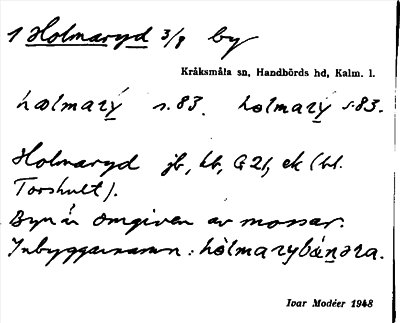 1 Holmaryd 3/8 by
Kråksmåla sn, Handbörds hd, Kalm. l.
hɷlmarý s.83. hɷlmarý s.83.
Holmaryd jb, kb, G21, ek (bl.
Torshult).
Byn är omgiven av mossar.
Inbyggarnamn: hòlmarybónəra.
Ivar Modéer 1948